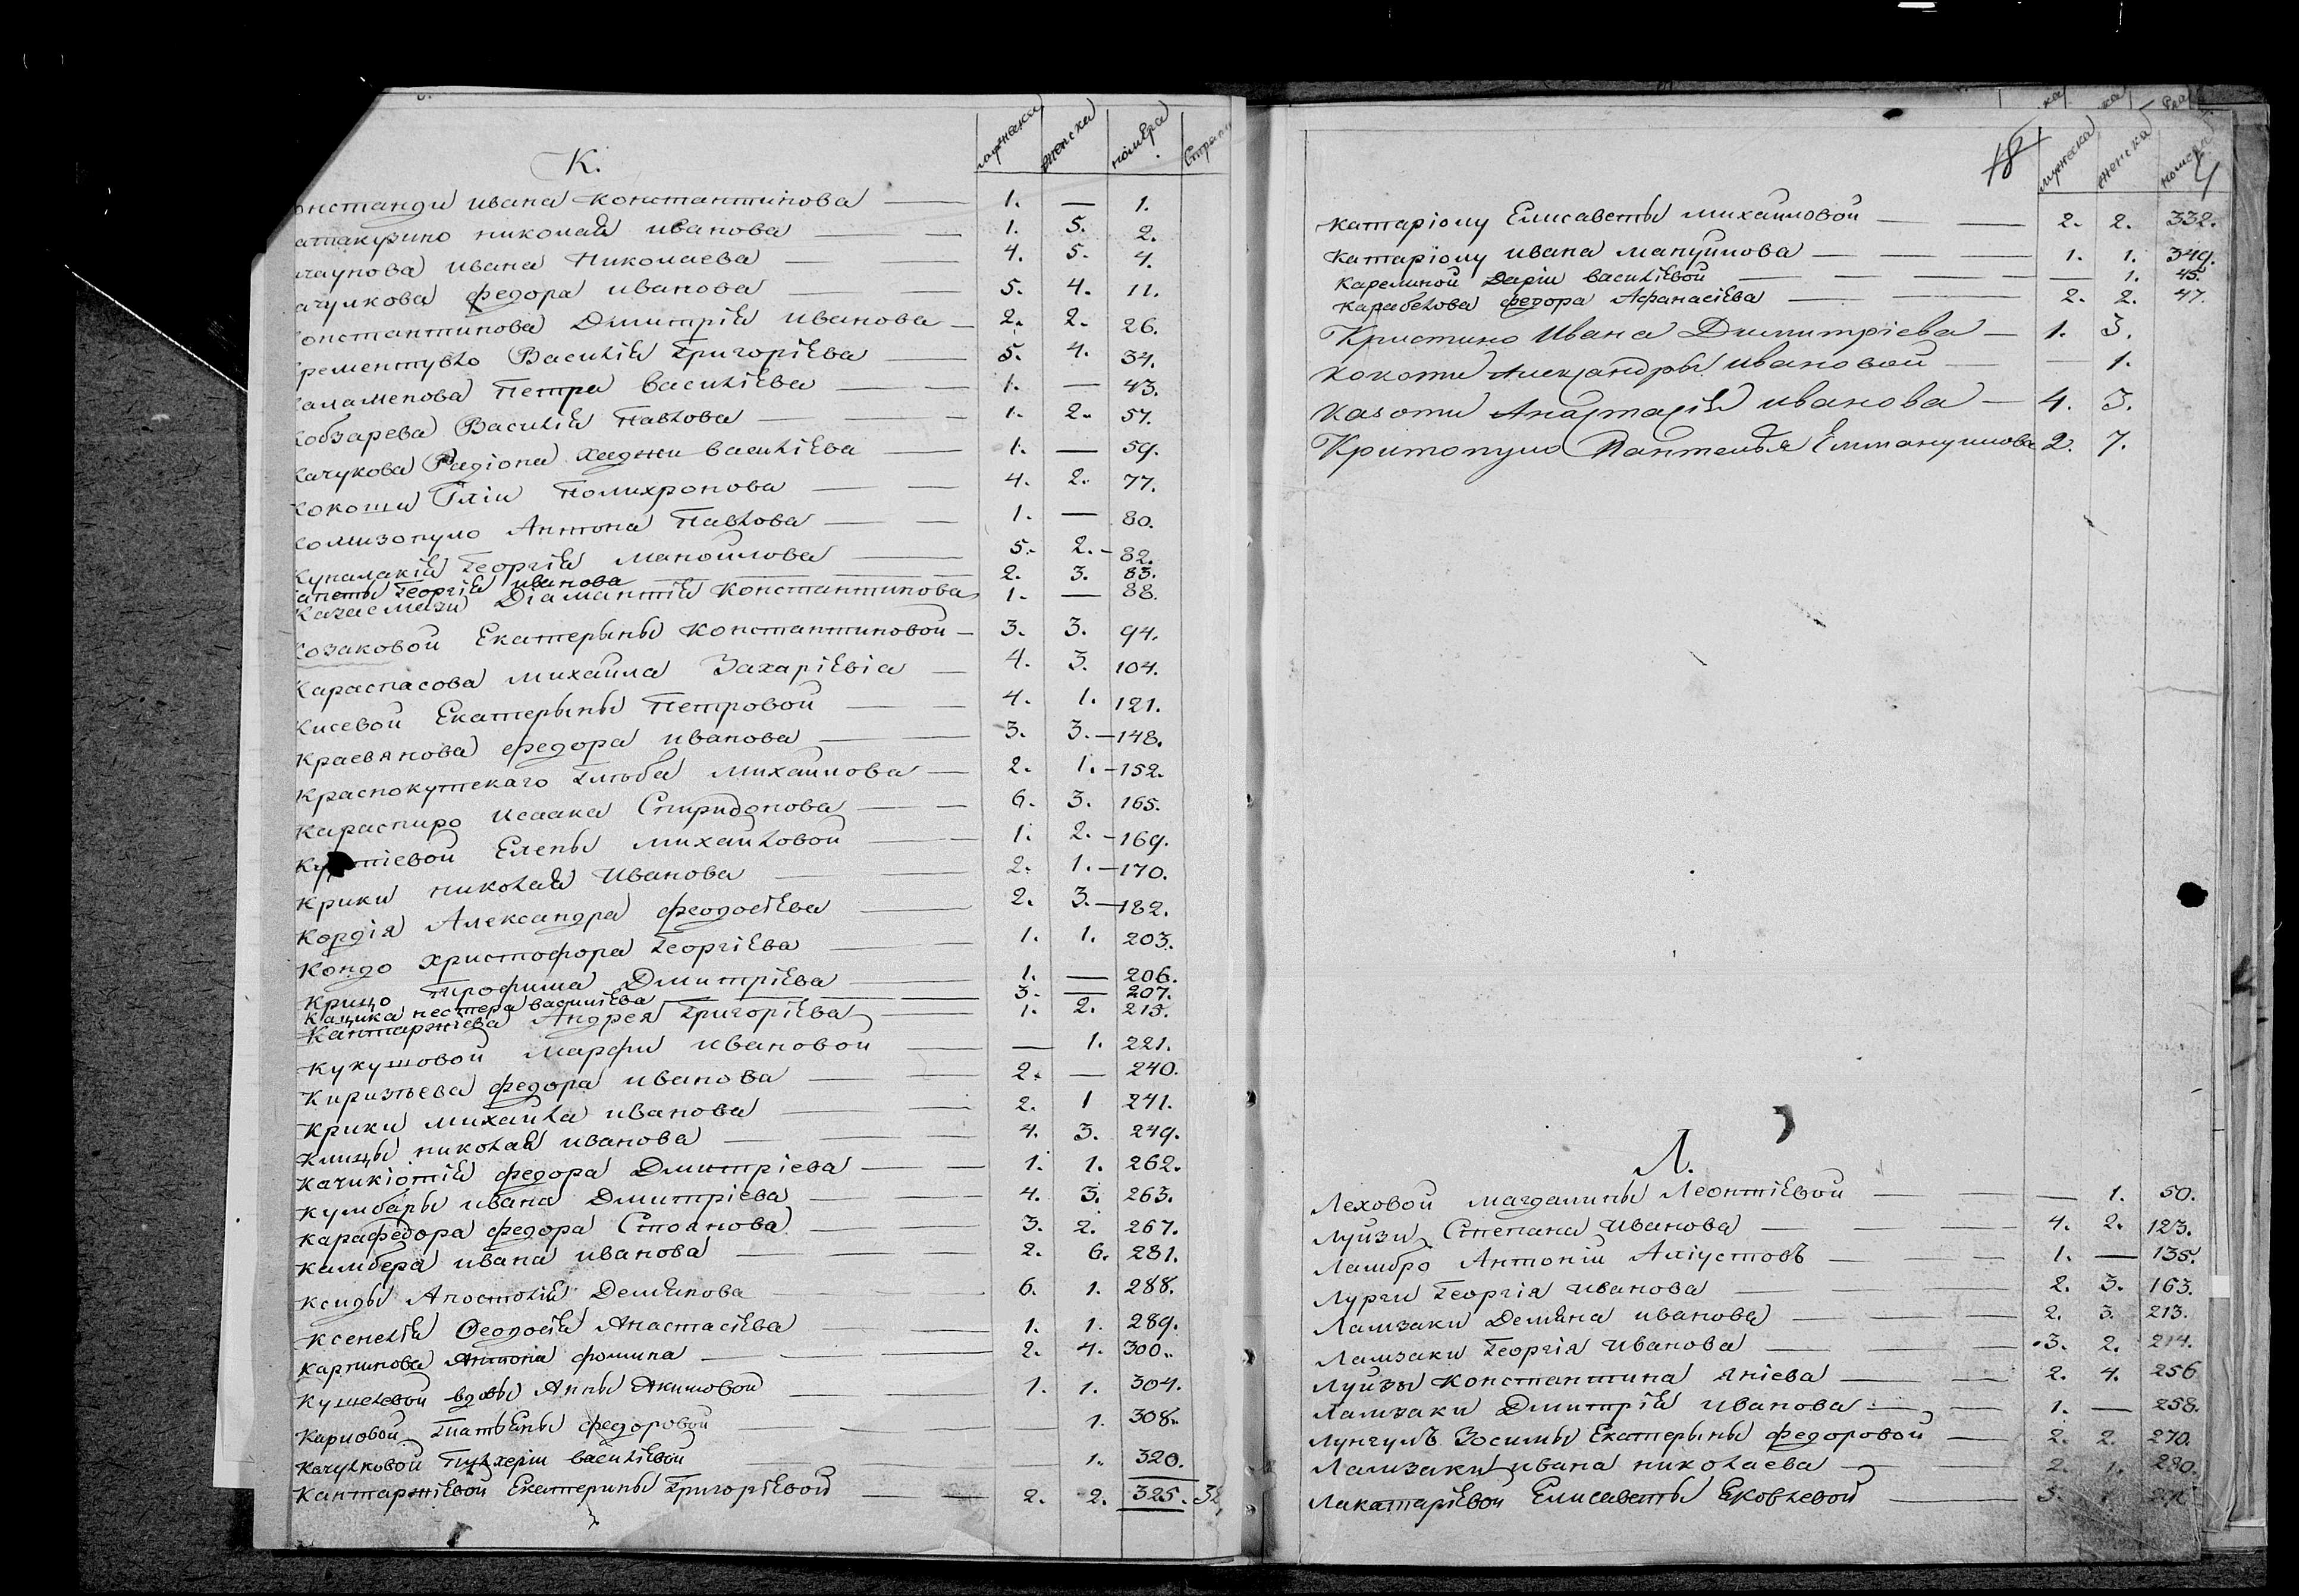 мужеска женска номера Стран
К.
онстанди ивана Константинова — 1. — 1.
атакузино николая иванова — 1. 5. 2.
ачаунова ивана Николаева — 4. 5. 4.
ачулкова федора иванова — 5. 4. 11.
онстантинова Дмитрія иванова — 2. 2. 26.
рементувло Василія Григоріева — 5. 4. 34.
аламенова Петра василіева — 1. — 43.
Кобзарева Василія Павлова — 1. 2. 57.
Качукова Радіона хаджи василіева — 1. — 59.
Кокоши Иліи Полихронова — 4. 2. 77.
Комизопуло Антона Павлова — 1. — 80.
Купалакія Георгія Манойлова — 5. 2. 82.
апеты Георгія иванова — 2. 3. 83.
Казасмази Діамантія Константинова 1. — 88.
Козаковой Екатерыны Константиновой — 3. 3. 94.
Караспасова михаила Захаріевіа — 4. 3. 104.
Кисевой Екатерыны Петровой — 4. 1. 121.
Краевянова федора иванова — 3. 3. 148.
Краснокутскаго Глѣба Михаилова — 2. 1. 152.
Караспиро исаака Спиридонова — 6. 3. 165.
Елены михайловой — 1. 2. 169.
Крики николая иванова — 2. 1. 170.
Кордія Александра феодосіева — 2. 3. 182.
Кондо христофора Георгіева — 1. 1. 203.
Крицо Трофима Дмитріева — 1. — 206.
Кацика нестера василіева — 3. — 207.
Кантаржіева Андрея Григоріева — 1. 2. 215.
Кукушовой Марфы ивановой — — 1. 221.
Киризѣева федора иванова — 2. — 240.
Крики михайла иванова — 2. 1 241.
Клицы николая иванова — 4. 3. 249.
Качикіотія федора Дмитріева — 1. 1. 262.
Кумбары ивана Дмитріева — 4. 3. 263.
Карафедора федора Стоянова — 3. 2. 267.
Камбера ивана иванова — 2. 6. 281.
Ксиды Апостолія Демянова — 6. 1. 288.
Ксенелія Ѳеодосія Анастасіева — 1. 1. 289.
Карпинова Антонія фомина — 2. 4. 300.
Кушелевой вдовы Анны Якимовой — 1. 1. 304.
Карповой Татьяны федоровой — 1. 308.
Качулковой Пулхеріи василіевой — 1. 320.
Кантаржіевой Екатерины Григоріевой — 2. 2. 325.
18
мужеска женска
Катаріону Елисаветы михаиловой — 2. 2. 332.
Катаріону ивана мануилова — 1. 1. 349.
Карелиной Даріи василіевой — — 1. 45.
Карабелова федора Афанасіева — 2. 2. 47.
Кристино Ивана Димитріева — 1. 3.
Кокоти Александры ивановой — — 1.
Казоти Анастасія иванова — 4. 3.
Критопуло Пантелѣя Еммануилова 2. 7.
Л.
Леховой магдалины Леонтіевой — — 1. 50.
Луйзи Степана иванова — 4. 2. 123.
Ламбро Антоній Аліустовъ — 1. — 135.
Лурги Георгія иванова — 2. 3. 163.
Ламзаки Демяна иванова — 2. 3. 213.
Ламзаки Георгія иванова — 3. 2. 214.
Луйзы Константина яніева — 2. 4. 256
Ламзаки Дмитрія иванова — 1. — 258.
Лунгулъ Зосимы Екатерыны федоровой — 2. 2. 270.
Ламзаки ивана николаева — 2. 1. 280.
Лакатаріевой Елисаветы Яковлевой — 3.